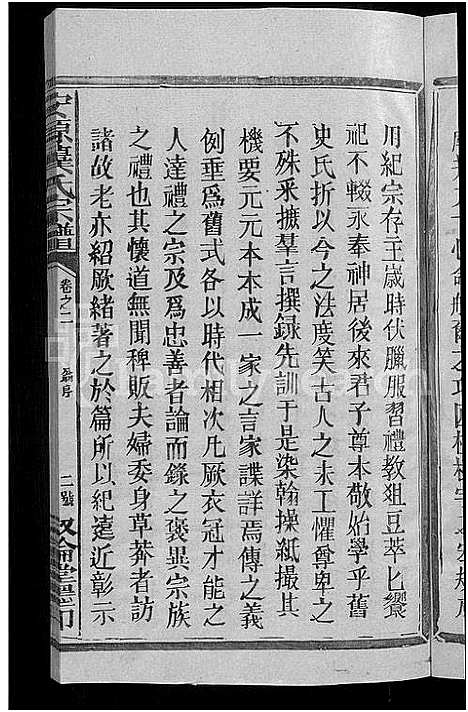 用紀宗存主歲時伏臘服習禮教俎豆萃匕饗
祀不輟永奉神居後來君子尊本敬始學乎舊
史氏折以今之法度笑古人之未工懼尊卑之
不殊釆摭羣言撰録先訓于是染翰操紙撮其
機要元元本本成一家之言家諜詳焉傳之義
例垂爲舊式各以時代相次凡厥衣冠才能之
人達禮之宗及爲忠善者論而錄之褒異宗族
之禮也其懷道無聞稗販夫婦委身草莽者訪
諸故老亦紹厥緒著之於篇所以紀遠近彰示
氏宗譜
卷之二
二號